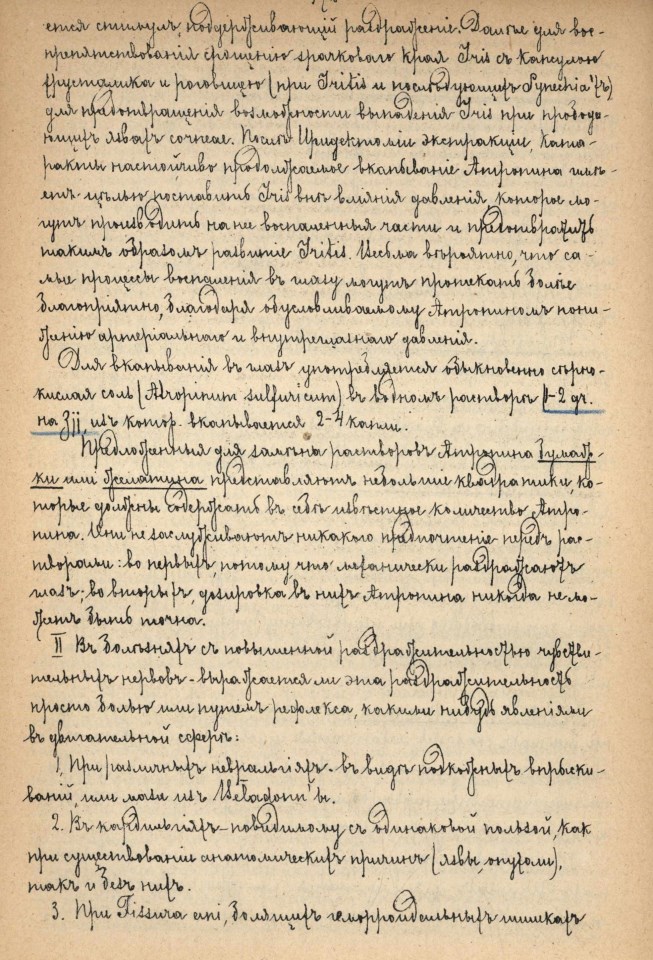 ется стимулъ, поддерживающій раздраженіе. Далѣе для вос-
препятствованія срощенію зрачковаго края Iris съ капсулою
хрусталика и роговицею (при Iritis и послѣдующихъ Synechia'хъ)
для предотвращенія возможности выпаденія Iris при прободаю-
ющихъ язвахъ corneae. Послѣ Иридектоміи экстракціи, ката-
ракты настойчиво продолжаемое вкапываніе Атропина имѣ-
етъ цѣлью поставить Iris внѣ вліянія давленія, которое мо-
гутъ производить на нее воспаленныя части и предотвратить
такимъ образомъ развитіе Iritis. Весьма вѣроятно, что са-
мые процессы воспаленія въ глазу могутъ протекать болѣе
благопріятно, благодаря обусловливаемому Атропиномъ пони-
женію артеріальнаго и внутриглазнаго давленія.
Для вкапыванія въ глазъ употребляется обыкновенно сѣрно-
кислая соль (Atropinum sulfuricum) въ водномъ растворѣ 1-2 gr.
на ʒii, изъ котор. вкапывается 2-4 капли.
Предложенныя для замѣны растворовъ Атропина бумаж-
ки или желатина представляютъ небольшіе квадратики, ко-
торые должны содержать въ себѣ извѣстное количество Атро-
пина. Они не заслуживаютъ никакого предпочтенія передъ рас-
творами: во первыхъ, потому, что механически раздражаютъ
глазъ; во вторыхъ, дозировка въ нихъ Атропина никогда не мо-
жетъ быть точна.
II Въ болѣзняхъ съ повышенной раздражительностью чувстви-
тельныхъ нервовъ - выражается ли эта раздражительность
просто болью или путемъ рефлекса, какими нибудь явленіями
въ двигательной сферѣ:
1, При различныхъ невралгіяхъ - въ видѣ подкожныхъ впрыски-
ваній, или мази изъ Belladonn'ы.
2. Въ кардialгіяхъ - повидимому съ одинаковой пользой, какъ
при существованіи анатомическихъ причинъ (язвы, опухоли),
такъ и безъ нихъ.
3. При Fissura ani, болящихъ геморроидальныхъ шишкахъ